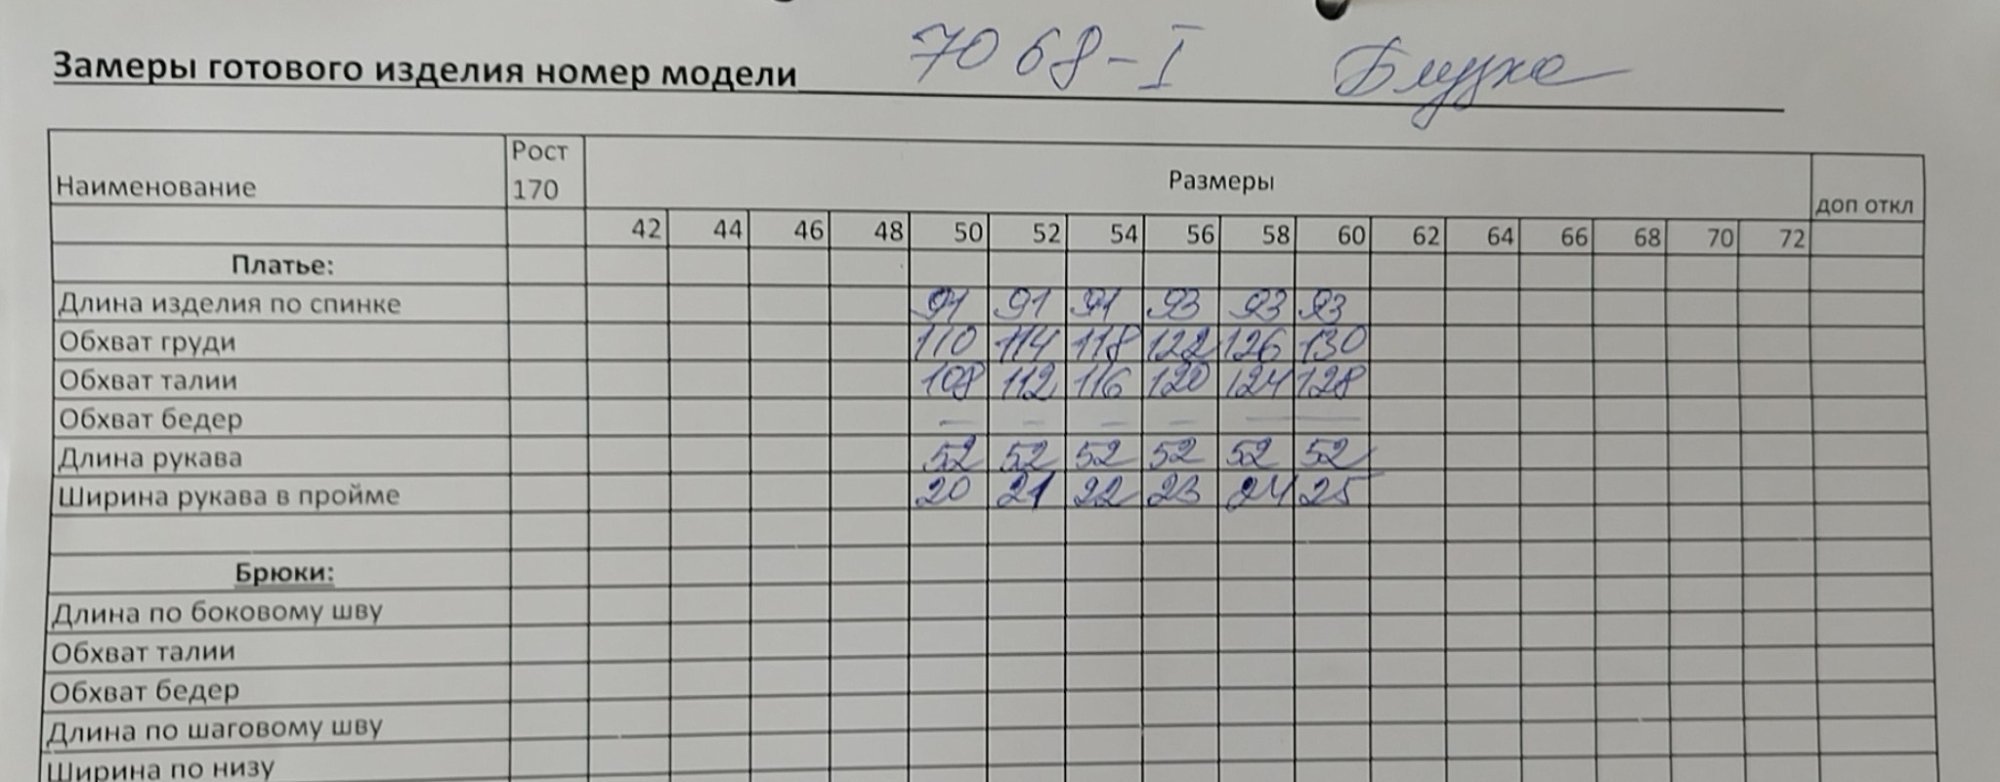 Замеры готового изделия номер модели 7068-I Блузка
Наименование Рост 170 Размеры доп откл
42 44 46 48 50 52 54 56 58 60 62 64 66 68 70 72
Платье:
Длина изделия по спинке 91 91 91 93 93 93
Обхват груди 110 114 118 122 126 130
Обхват талии 108 112 116 120 124 128
Обхват бедер — — — — — —
Длина рукава 52 52 52 52 52 52
Ширина рукава в пройме 20 21 22 23 24 25
Брюки:
Длина по боковому шву
Обхват талии
Обхват бедер
Длина по шаговому шву
Ширина по низу